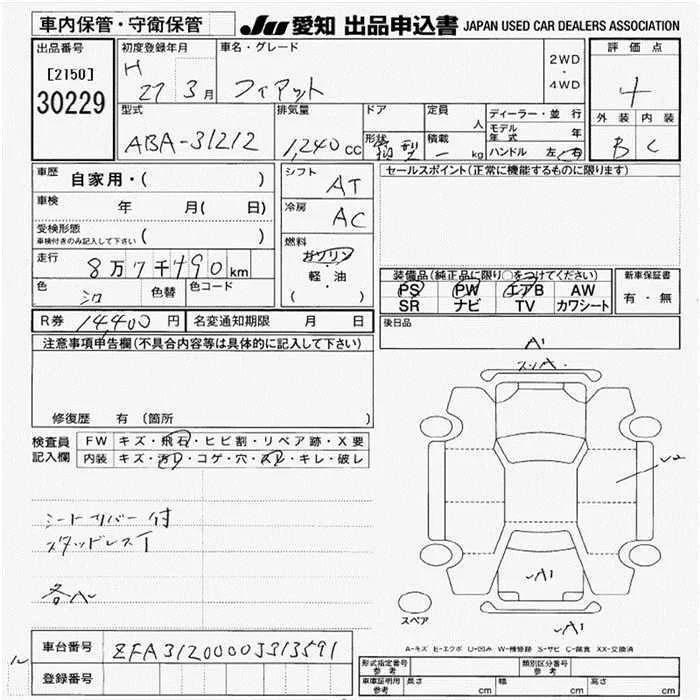 車内保管・守衛保管
JU 愛知 出品申込書 JAPAN USED CAR DEALERS ASSOCIATION
出品番号
[2150]
30229
初度登録年月
H 27 3月
車名・グレード
フィアット
2WD
・
4WD
評価点
4
外装 内装
B C
型式
ABA-31212
排気量
1,240 cc
ドア
形状
箱型
定員
人
積載
- kg
ディーラー・並行
モデル年式 年
ハンドル 左・右
車歴 自家用・( )
車検 年 月( 日)
受検形態
車検付きのみ記入して下さい ( )
走行 8万7千490km
色 シロ
色替
色コード
シフト AT
冷房 AC
燃料
ガソリン
・
軽・油
( )
セールスポイント(正常に機能するものに限ります)
装備品(純正品に限り○をつけてください)
PS PW エアB AW
SR ナビ TV カワシート
新車保証書
有・無
後日品
R券 14,400円 名変通知期限 月 日
注意事項申告欄(不具合内容等は具体的に記入して下さい)
修復歴 有 (箇所 )
検査員
記入欄
FW キズ・飛石・ヒビ割・リペア跡・X要
内装 キズ・汚れ・コゲ・穴・スレ・キレ・破レ
シートカバー付
スタッドレスT
各A
A1
スリA
U2
A1
A1
スペア
A-キズ E-エクボ U-凹み W-補修跡 S-サビ C-腐食 XX-交換済
車台番号 ZFA3120000J313591
登録番号
形式指定番号
参考
類別区分番号
参考
車庫証明用
参考
長さ cm
幅 cm
高さ cm